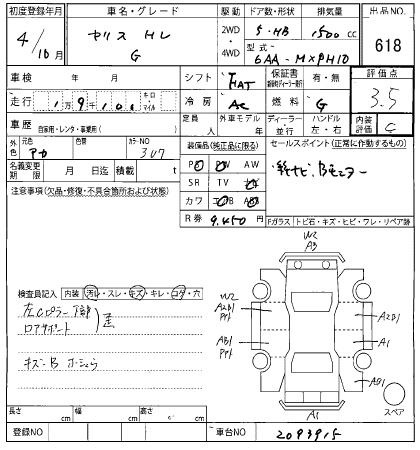 初度登録年月 車名・グレード 駆動 ドア数・形状 排気量 出品NO.
4/10月 ヤリス HV G 2WD・4WD 5・HB 1500cc 618
型式 6AA-MXPH10
車検 年 月 シフト FAT 保証書 有・無 評価点
走行 1万9千100 キロ・マイル 冷房 AC 燃料 G 3.5
車歴 自家用・レンタ・事業用( ) 定員 人 外車モデル 年 ディーラー・並行 ハンドル 左・右 内装評価 C
外色 元色 アカ 色替 カラーNO 3U7 装備品(純正品に限る) セールスポイント(正常に作動するもの)
名義変更期限 月 日迄 積載 t PS PW AW
注意事項(欠品・修復・不具合箇所および状態) SR TV
カワ AB
R券 9,450円 Fガラス トビ石・キズ・ヒビ・ワレ・リペア跡
W2
A3
検査員記入 内装 汚レ・スレ・キズ・キレ・コゲ・穴
左Cピラー
ロアサポート
キズ・B
W2
A2B1
A2B1
AB1
A1
A1
スペア
長さ cm 幅 cm 高さ cm
登録NO 車台NO 2093915